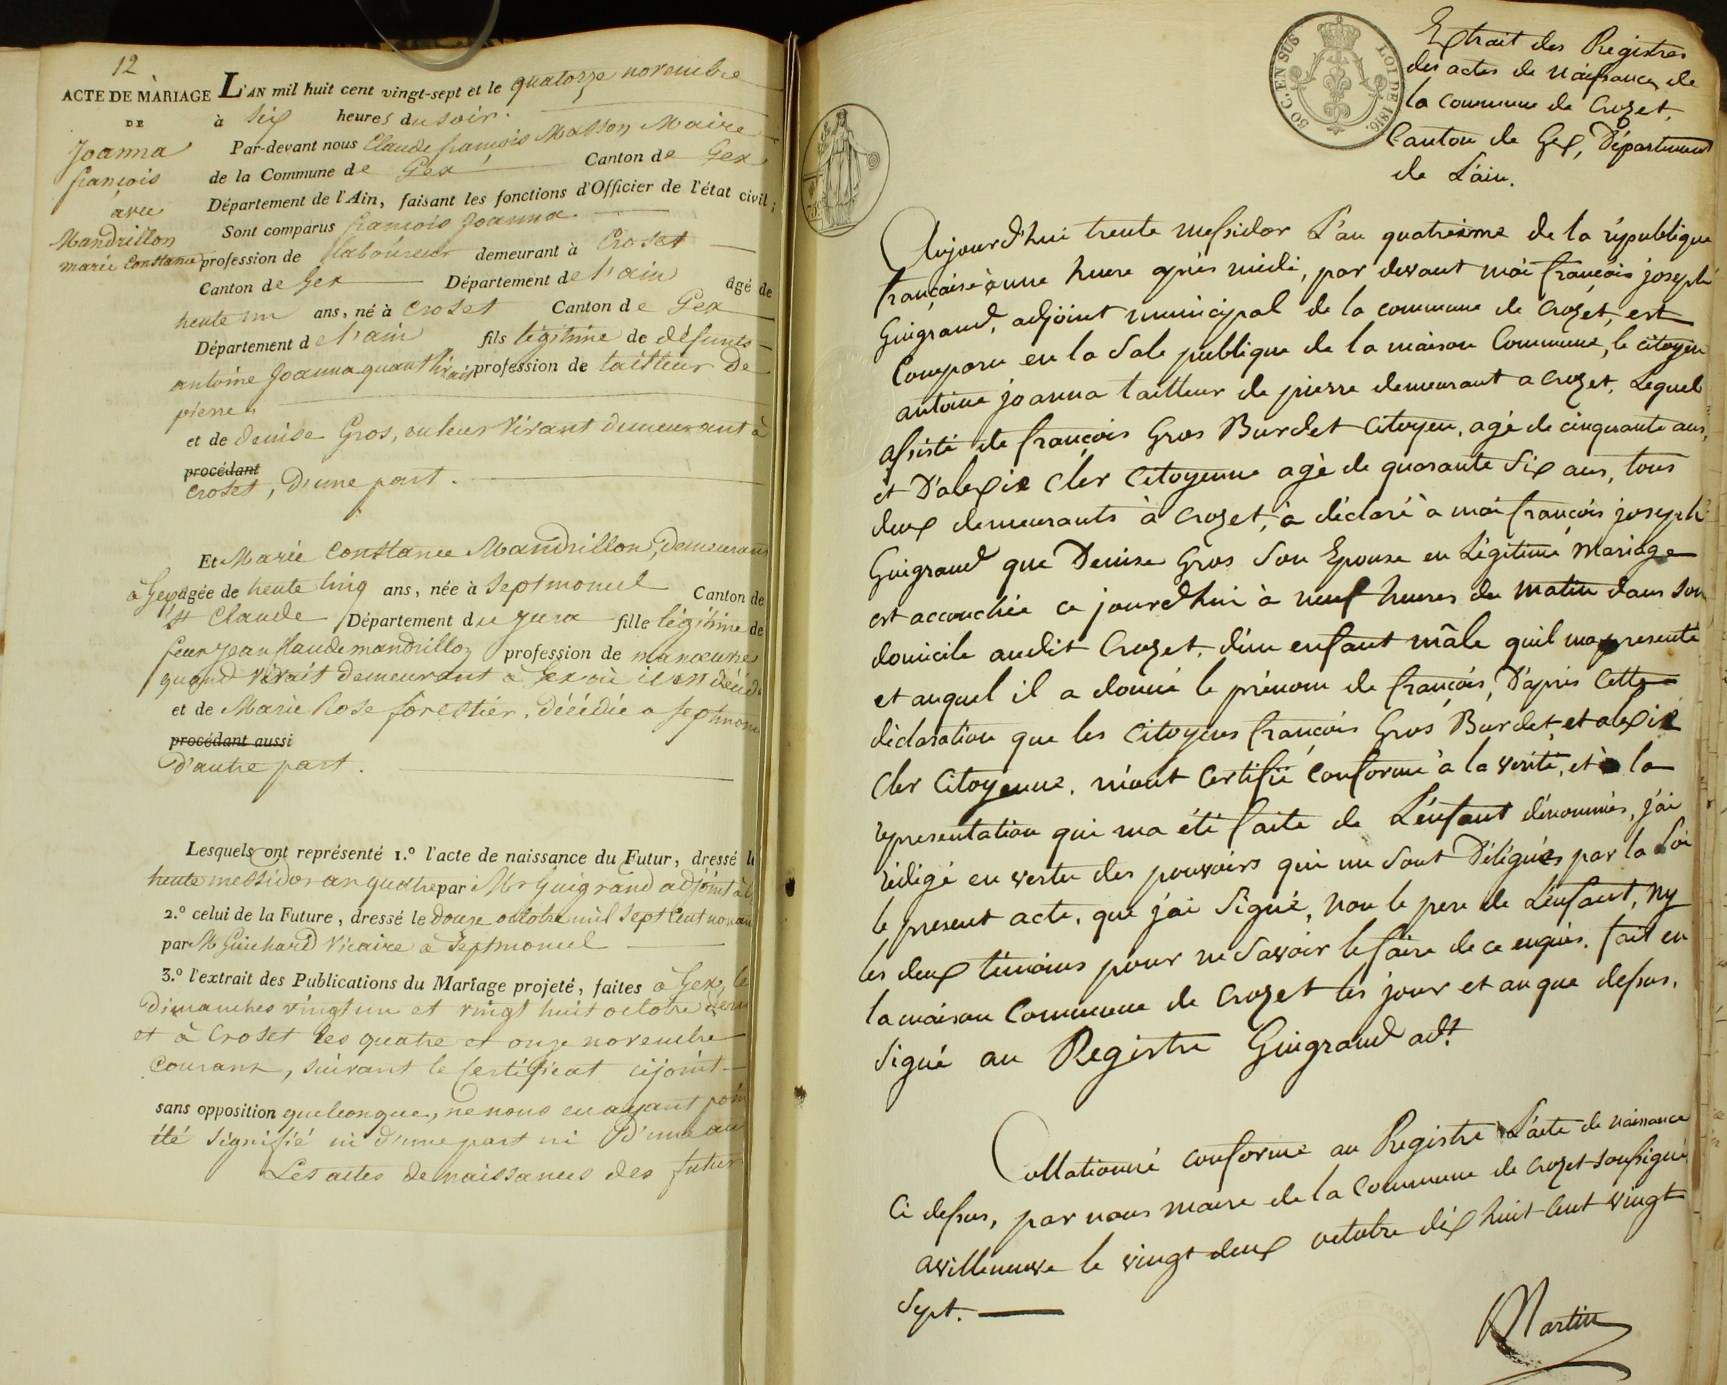 12
ACTE DE MARIAGE
DE
Joanna
françois
avec
Mandrillon
marie Constance
L'AN mil huit cent vingt-sept et le quatorze novembre
à six heures du soir.
Par-devant nous Claude françois Masson Maire
de la Commune de Gex Canton de Gex
Département de l'Ain, faisant les fonctions d'Officier de l'état civil;
Sont comparus françois Joanna
profession de laboureur demeurant à Croset
Canton de Gex Département de l'ain âgé de
trente un ans, né à Croset Canton de Gex
Département de l'ain fils légitime de défunts
antoine Joanna quand vivait profession de tailleur de
pierre
et de denise Gros, en leur vivant demeurant à
procédant
Croset, d'une part.
Et Marie Constance Mandrillon, demeurant
à Gex âgée de trente cinq ans, née à Septmoncel Canton de
St Claude Département du Jura fille légitime de
feu jean Claude mandrillon profession de manoeuvre
quand vivait demeurant à Gex où il est décédé
et de Marie Rose forestier, décédée a septmoncel
procédant aussi
d'autre part.
Lesquels ont représenté 1.º l'acte de naissance du Futur, dressé le
trente messidor an quatre par Mr Guigrand adjoint
2.º celui de la Future, dressé le douze octobre mil sept cent
par Mr Guichard Vicaire à Septmoncel
3.º l'extrait des Publications du Mariage projeté, faites à Gex, le
Dimanches vingt un et vingt huit octobre
et à Croset les quatre et onze novembre
Courant, suivant le Certificat cijoint
sans opposition quelconque, ne nous en ayant point
été signifié ni d'une part ni d'une
Les actes de naissances des futur
50 C. EN SUS
LOI DE 1816.
Extrait des Registres
des actes de naissances de
la commune de Crozet,
Canton de Gex, Département
de L'ain.
Aujourd'hui trente messidor L'an quatrieme de la république
française à une heure après midi, par devant moi françois joseph
Guigrand, adjoint municipal de la commune de Crozet, est
Comparu en la Sale publique de la maison Commune, le citoyen
antoine joanna tailleur de pierre demeurant a crozet, Lequel
assisté de françois Gros Burdet Citoyen, agé de cinquante ans,
et D'alexis Cler Citoyenne agé de quarante Six ans, tous
deux demeurants à Crozet, à déclaré à moi françois joseph
Guigrand que Denise Gros Son Epouse en Légitime Mariage
est accouchée ce jourd'hui à neuf heures du matin dans Son
domicile audit Crozet, d'un enfant mâle qu'il ma presenté
et auquel il a donné le prénom de françois, D'après Cette
déclaration que les Citoyens françois Gros Burdet et alexis
Cler Citoyenne, m'ont Certifié conforme à la vérité, et à la
representation qui ma été faite de L'enfant dénommés, j'ai
rédigé en vertu des pouvoirs qui me sont Délégués par la Loi
le present acte, que j'ai Signé, non le pere de L'enfant, Ny
les deux témoins pour ne Savoir le faire de ce enquis. fait en
la maison Commune de Crozet les jour et an que dessus.
Signé au Registre Guigrand adt.
Collationné conforme au Registre L'acte de naissance
Ci dessus, par nous maire de la Commune de Crozet soussigné
a villeneuve le vingt deux octobre dix huit cent vingt
Sept.
Martin